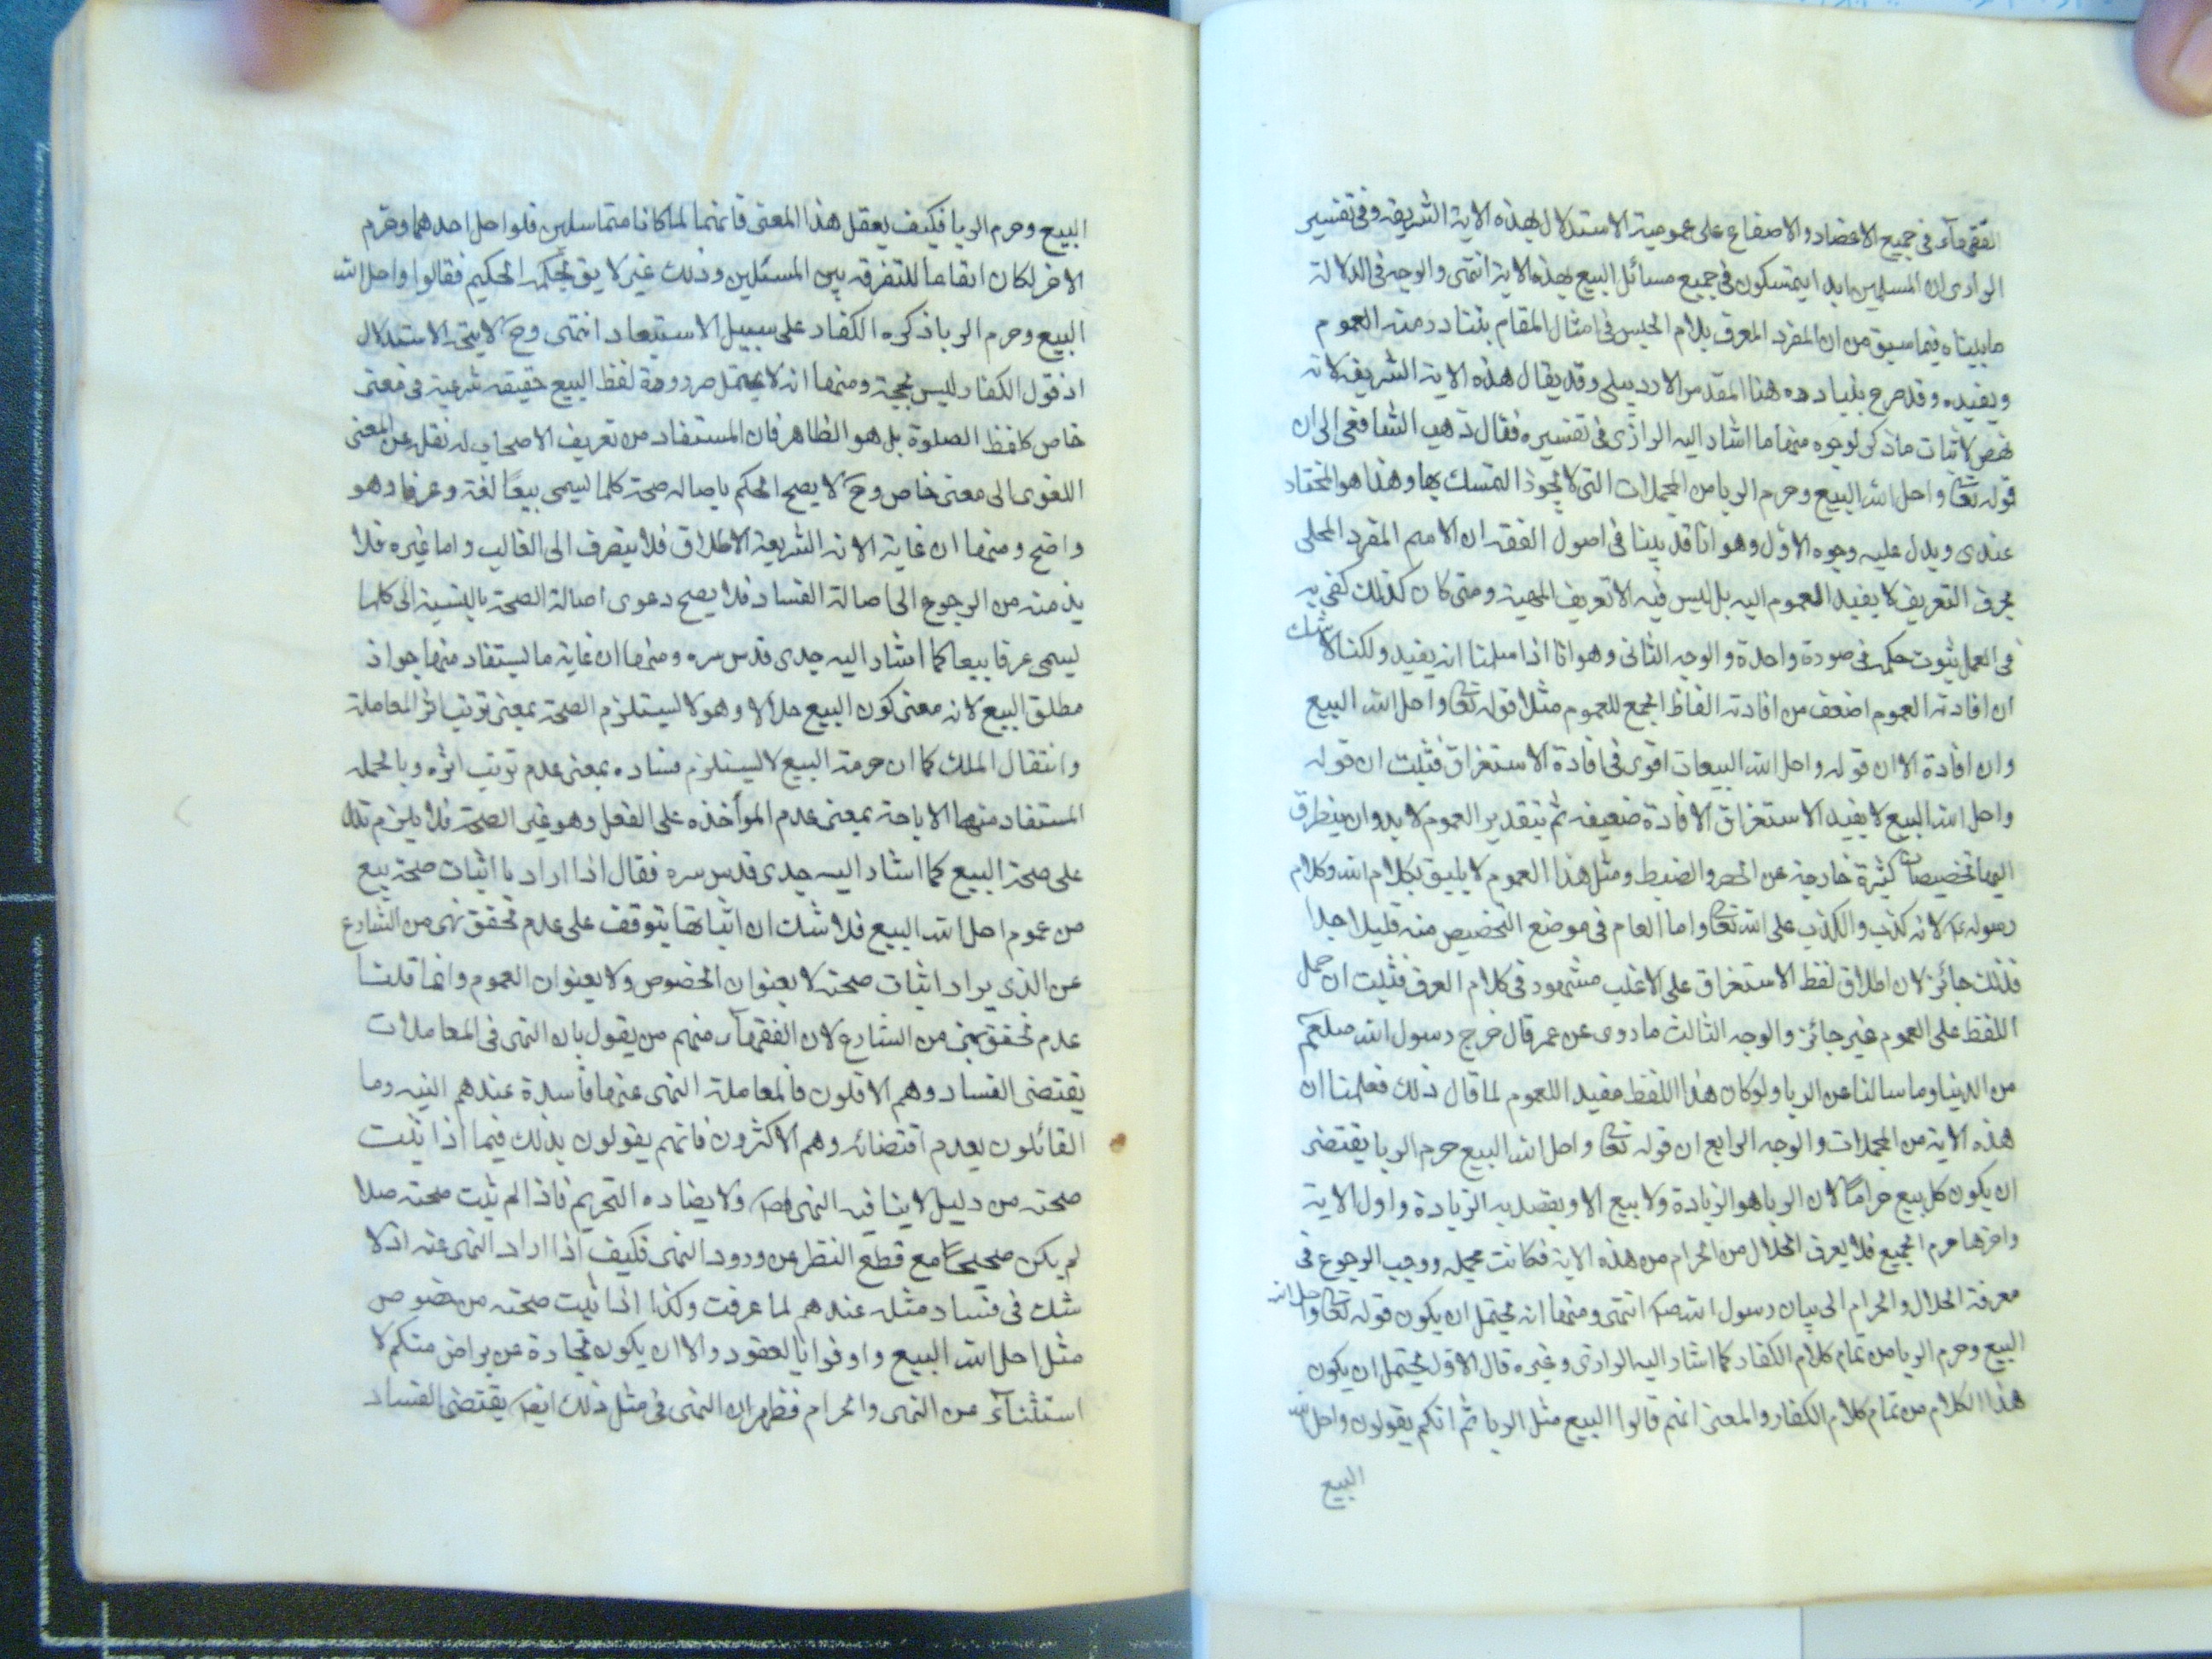 الفقهآء فى جميع الاعضاد والاصقاع على عمومية الاستدلال بهذه الاية الشريفة وفى تفسير
الرازى ان المسلمين ابدا يتمسكون فى جميع مسائل البيع بهذه الاية انتهى والوجه فى الدلالة
ما بيناه فيما سبق من ان المفرد المعرف بلام الجنس فى امثال المقام يتبادر منه العموم
ويفيده وقد صرح بتبادره هنا المقدس الاردبيلى وقد يقال هذه الاية الشريفة لا
تنهض لاثبات ما ذكر لوجوه منها ما اشار اليه الرازى فى تفسيره فقال ذهب الشافعى الى ان
قوله تعا واحل الله البيع وحرم الربا من المجملات التى لا يجوز التمسك بها وهذا هو المختار
عندى ويدل عليه وجوه الاول وهو انا قد بينا فى اصول الفقه ان الاسم المفرد المحلى
بحرف التعريف لا يفيد العموم اليه بل ليس فيه الا تعريف المهية ومتى كان كذلك كفى به
فى العمل بثبوت حكمه فى صورة واحدة والوجه الثانى وهو انا اذا سلمنا انه يفيد ولكنا لا شك
ان افادته العموم اضعف من افادته الفاظ الجمع للعموم مثلا قوله تعا واحل الله البيع
وان افادة الا ان قوله واحل الله البيعات اقوى فى افادة الاستغراق فثبت ان قوله
واحل الله البيع لا يفيد الاستغراق الا افادة ضعيفة ثم بتقدير العموم لا بد وان يتطرق
اليها تخصيصات كثيرة خارجة عن الحصر والضبط ومثل هذا العموم لا يليق بكلام الله وكلام
رسوله ص لانه كذب والكذب على الله تعا واما العام فى موضع التخصيص منه قليلا جدا
فذلك جائز لان اطلاق لفظ الاستغراق على الاغلب مشهود فى كلام العرف فثبت ان حمل
اللفظ على العموم غير جائز والوجه الثالث ما روى عن عمر قال خرج رسول الله صلعم
من الدنيا وما سالنا عن الربا ولو كان هذا اللفظ مفيدا للعموم لما قال ذلك فعلمنا ان
هذه الاية من المجملات والوجه الرابع ان قوله تعا واحل الله البيع حرم الربا يقتضى
ان يكون كل بيع حرامًا لان الربا هو الزيادة ولا بيع الا ويقصد به الزيادة واول الاية
واخرها حرم الجميع فلا يعرف الحلال من الحرام من هذه الاية فكانت مجملة ووجب الرجوع فى
معرفة الحلال والحرام الى بيان رسول الله ص انتهى ومنها انه يحتمل ان يكون قوله تعا واحل الله
البيع وحرم الربا من تمام كلام الكفار كما اشار اليه الرازى وغيره قال الاول يحتمل ان يكون
هذا الكلام من تمام كلام الكفار والمعنى انهم قالوا البيع مثل الربا ثم انكم يقولون واحل الله
البيع
البيع وحرم الربا فكيف يعقل هذا المعنى فانهما لما كانا متماثلين فلو احل احدهما وحرم
الاخر لكان ايقاعا للتفرقة بين المسئلين وذلك غير لايق بحكمة الحكيم فقالوا واحل الله
البيع وحرم الربا ذكره الكفار على سبيل الاستبعاد انتهى وح لا يتجه الاستدلال
اذ قول الكفار ليس بحجة ومنها انه لا يحتمل صرورة لفظ البيع حقيقة شرعية فى معنى
خاص كلفظ الصلوة بل هو الظاهر فان المستفاد من تعريف الاصحاب له نقله عن المعنى
اللغوى الى معنى خاص وح لا يصح الحكم باصاله صحة كلما ليسمى بيعًا لغة وعرفا وهو
واضح ومنها ان غاية الاية الشريفة الاطلاق فلا ينصرف الى الغالب واما غيره فلا
بد منه من الرجوع الى اصالة الفساد فلا يصح دعوى اصالة الصحة بالنسبة الى كلما
ليسمى عرفا بيعا كما اشار اليه جدى قدس سره ومنها ان غاية ما ليستفاد منها جواز
مطلق البيع لانه معنى كون البيع حلالا وهو لا ليستلزم الصحة بمعنى ترتب اثر المعاملة
وانتقال الملك كما ان حرمة البيع لا ليستلزم فساده بمعنى عدم ترتب اثره وبالجملة
المستفاد منها الاباحة بمعنى عدم المؤاخذة على الفعل وهو غير الصحة فلا يلزم تدل
على صحة البيع كما اشار اليه جدى قدس سره فقال اذا اراد با اثبات صحة بيع
من عموم احل الله البيع فلا شك ان اثباتها يتوقف على عدم تحقق نهى من الشارع
عن الذى يراد اثبات صحته لا بعنوان الخصوص ولا بعنوان العموم وانما قلنا
عدم تحقق نهى من الشارع لان الفقهآء منهم من يقول بان النهى فى المعاملات
يقتضى الفساد وهم الاقلون فالمعاملة النهى عنها فاسدة عندهم البته وما
القائلون بعدم اقتضائه وهم الاكثرون فانهم يقولون بذلك فيما اذا ثبت
صحته من دليل لا ينافيه النهى ولا يضاده التحريم فاذا لم يثبت صحته صلا
لم يكن صحيحًا مع قطع النظر عن ورود النهى فكيف اذا اراد النهى عنه اذ لا
شك فى فساد مثله عندهم لما عرفت وكذا اذا ثبت صحته من خصوص
مثل احل الله البيع واوفوا بالعقود والا ان يكون تجارة عن تراض منكم لا
استثنآء من النهى والحرام فظهر ان النهى فى مثل ذلك ايض يقتضى الفساد